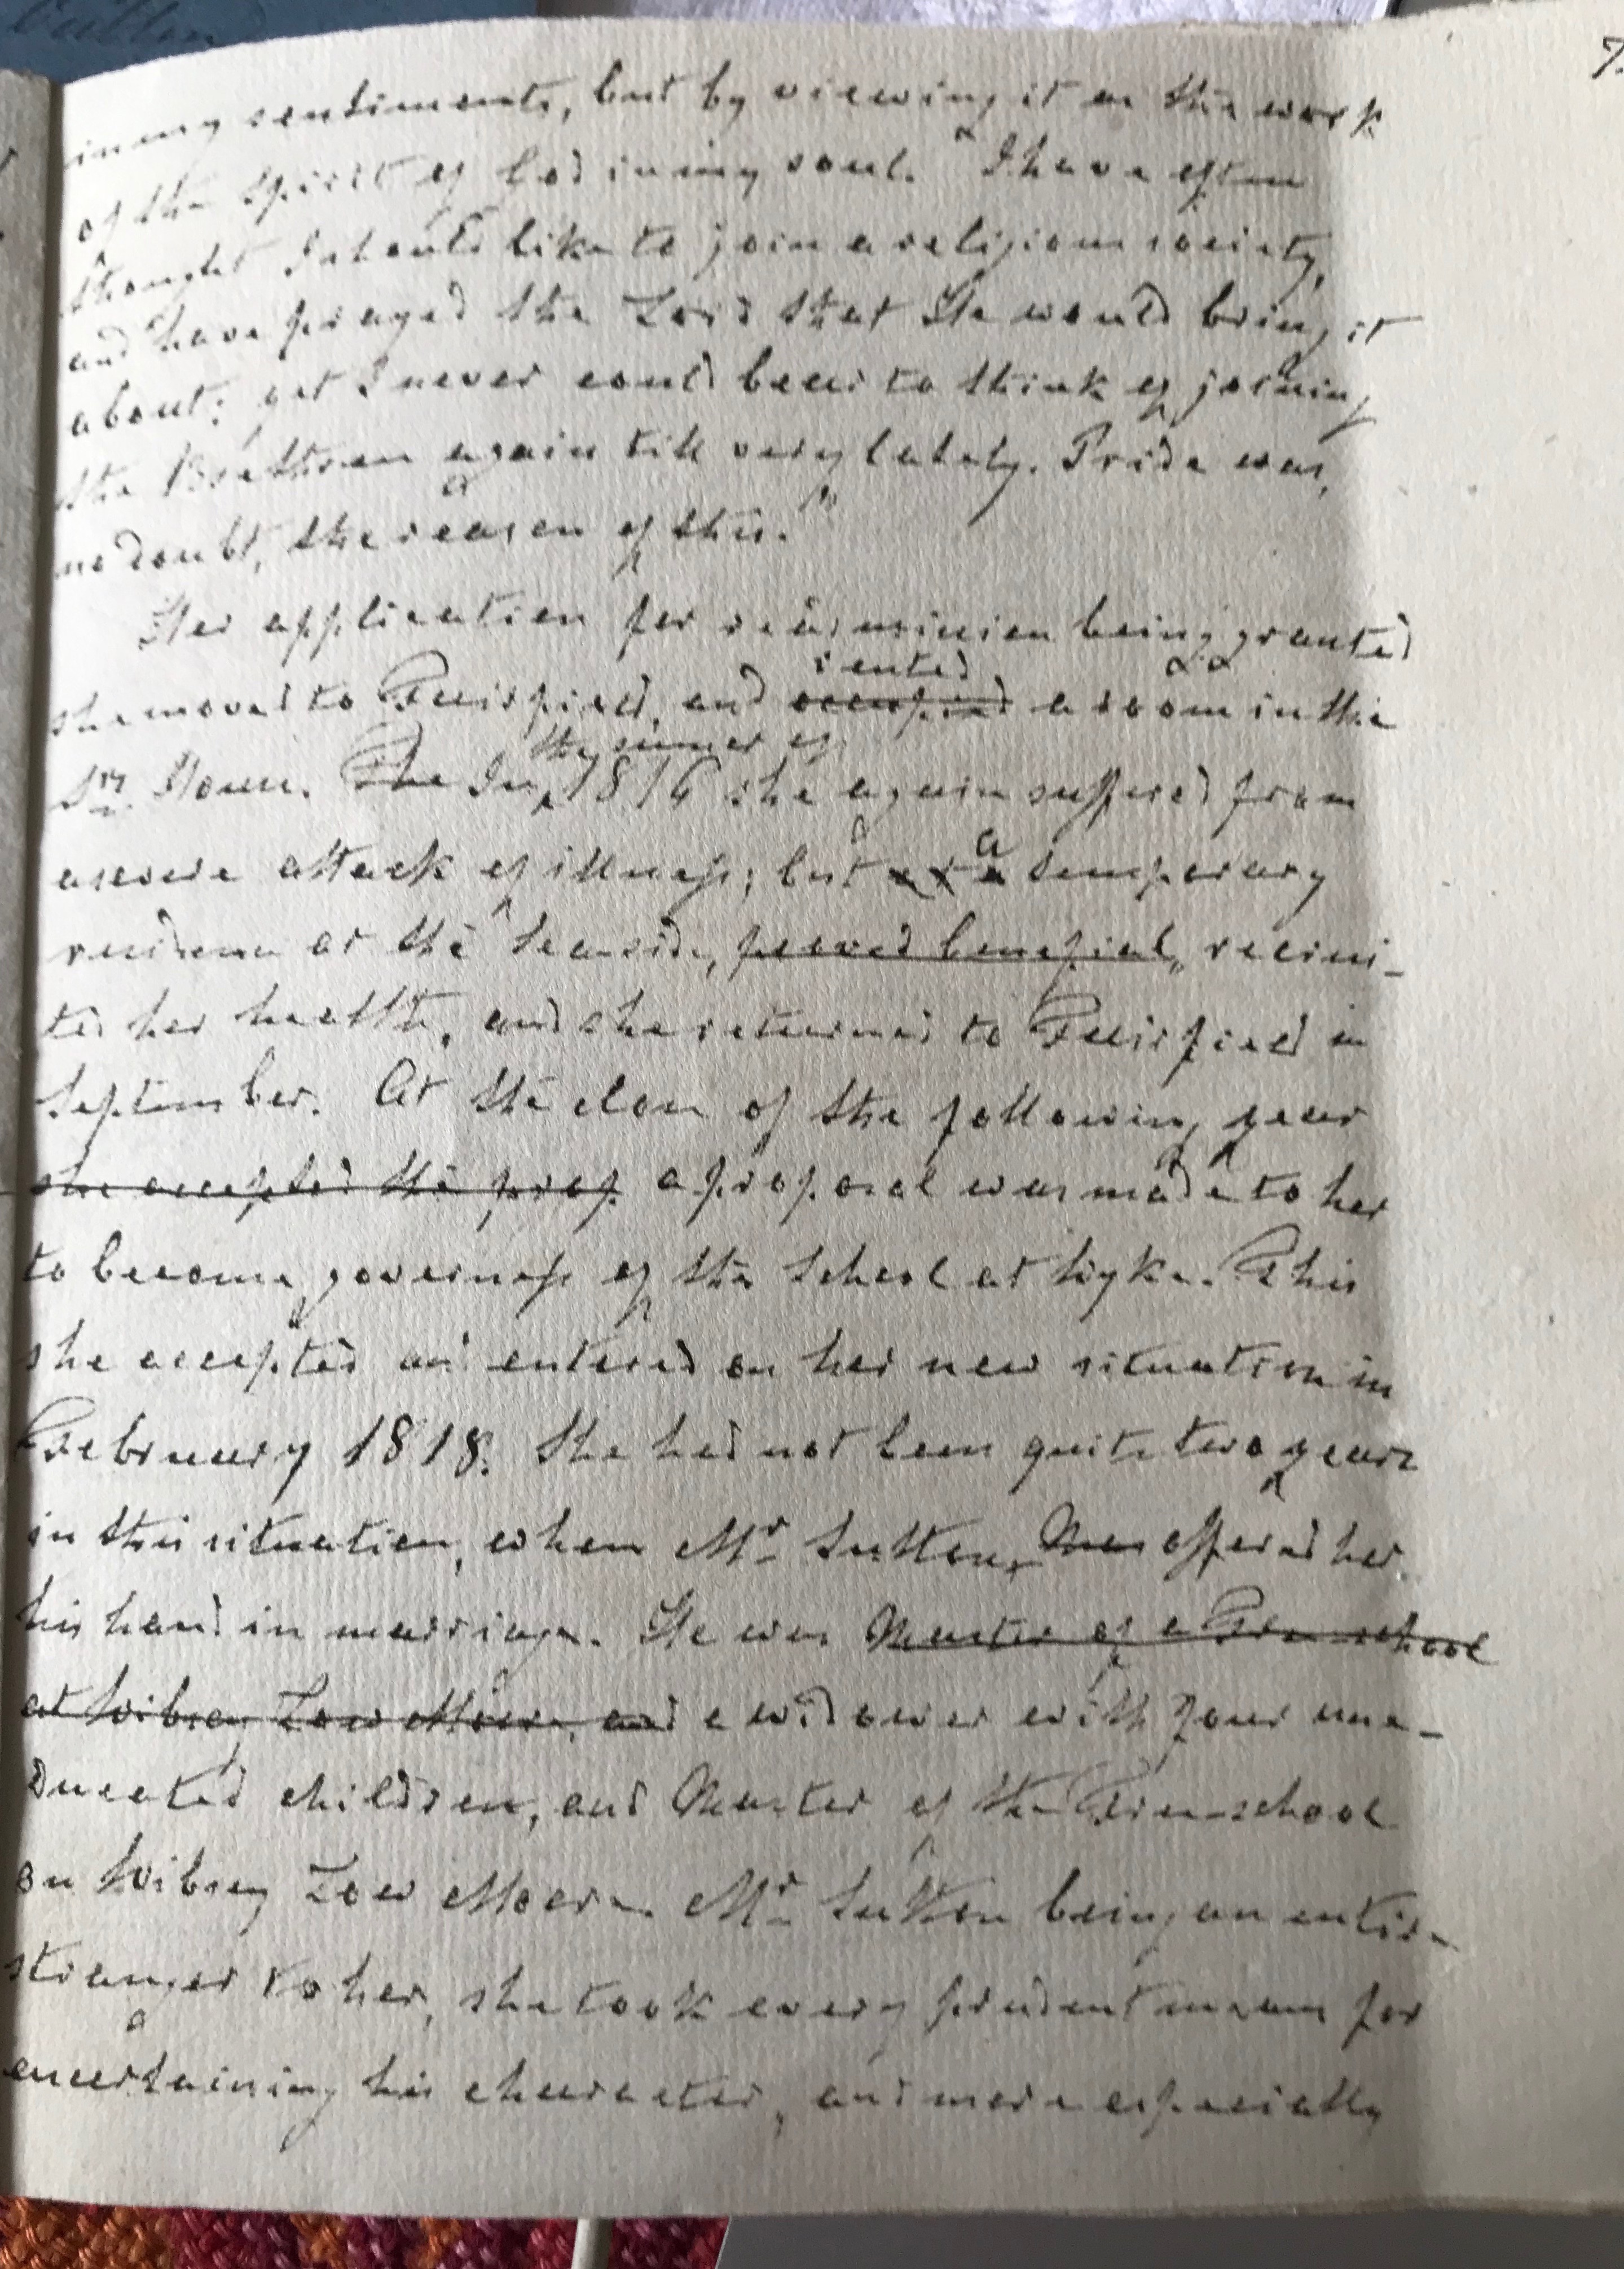 Sutton
7.
in my sentiments, but by viewing it as the work
of the Spirit of God in my soul. "I have often
thought I should like to join a religious society,
and have prayed the Lord that He would bring it
about; yet I never could bear to think of joining
the Brethren again till very lately. Pride was,
no doubt, the reason of this."
Her application for readmission being granted
rented
she moved to Fairfield, and occupied a room in the
the summer of
Srs House. The In 1816 she again suffered from
a
a severe attack of illness; but temporary
residence at the Seaside, proved beneficial, recrui-
ted her health, and she returned to Fairfield in
September. At the close of the following year
she accepted the prop a proposal was made to her
to become governess of the School at Wyke. This
she accepted and entered on her new situation in
February 1818. She had not been quite two years
in this situation, when Mr Sutton, offered her
his hand in marriage. He was Master of a Free school
at Wibsey Low Moor, and a widower with four une-
ducated children, and Master of the Free-school
on Wibsey Low Moor. Mr Sutton being an entire
stranger to her, she took every prudent means for
ascertaining his character, and more especially